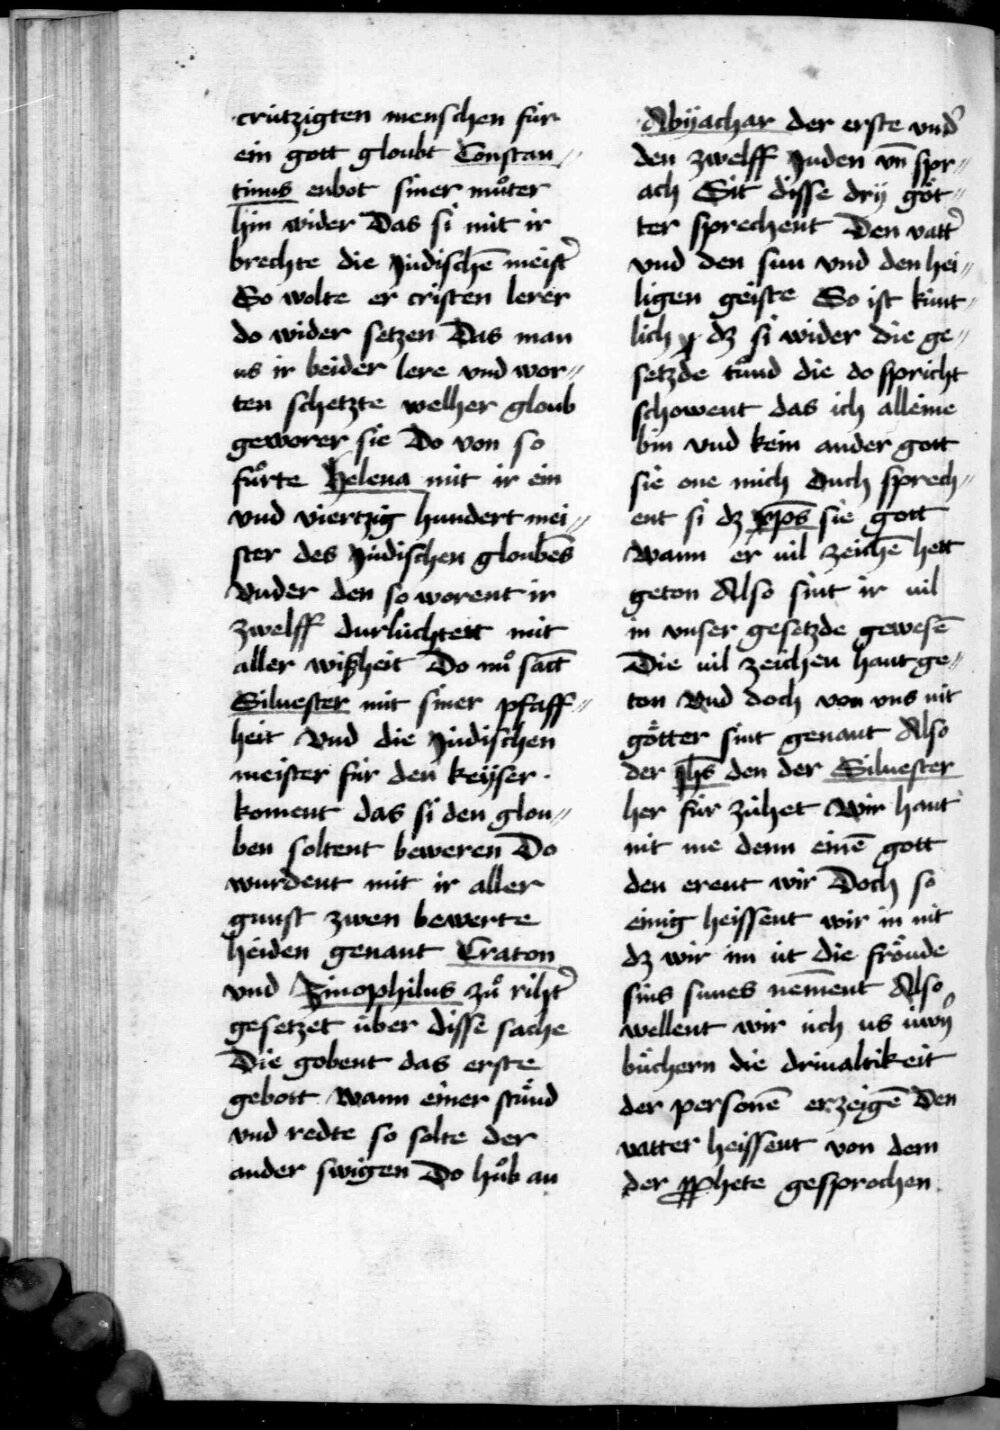 crützigten menschen für
ein gott gloubt Constan⸗
tinus enbot siner muͦter
hin wider Das si mit ir
brechte die Jüdischē meist͛
So wolte er cristen lerer
do wider setzen Das man
us ir beider lere vnd wor⸗
ten schetzte welher gloub
geworer sie Do von so
fuͦrte Helena mit ir ein
vnd viertzig hundert mei⸗
ster des Jüdischen gloubēs
Vnder den so worent ir
zwelff durlüchtett mit
aller wißheit Do nuͦ sāct
Siluester mit siner pfaff⸗
heit Vnd die Jüdischen
meister für den keÿser.
koment das si den glou⸗
ben soltent beweren Do
wurdent mit ir aller
gunst zwen bewerte
heiden genant Craton
vnd Zinophilus zuͦ riht͛
gesetzet über disse sache
Die gobent das erste
gebott Wann einer stuͦnd
vnd redte so solte der
ander swigen Do huͦb an
Abÿachar der erste vnd͛
den zwelff Juden vn̄ spr⸗
ach Sit disse drÿ göt⸗
ter sprechent Den vatt͛
vnd den sun vnd den hei⸗
ligen geiste So ist kunt⸗
lich dz si wider die ge⸗
setzde tuͦnd die do spricht
schowent das ich alleine
bin vnd kein ander gott
sie one mich Ouch sprech⸗
ent si dz xp̄s sie gott
Wann er uil zeichē hett
geton Also sint ir uil
in vnser gesetzde gewesē
Die uil zeichen hant ge⸗
ton Vnd doch von vns nit
götter sint genant Also
der ih̄s den der Siluester
her für zühet Wir hant
nit me denn einē gott
den erent wir Doch so
einig heissent wir in nit
dz wir im üt die fröude
sins sunes nēment Also
wellent wir üch us üwn͛
büchern die driualtikeit
der personē erzeigē Den
vatter heissent von dem
der ꝓphete gesprochen